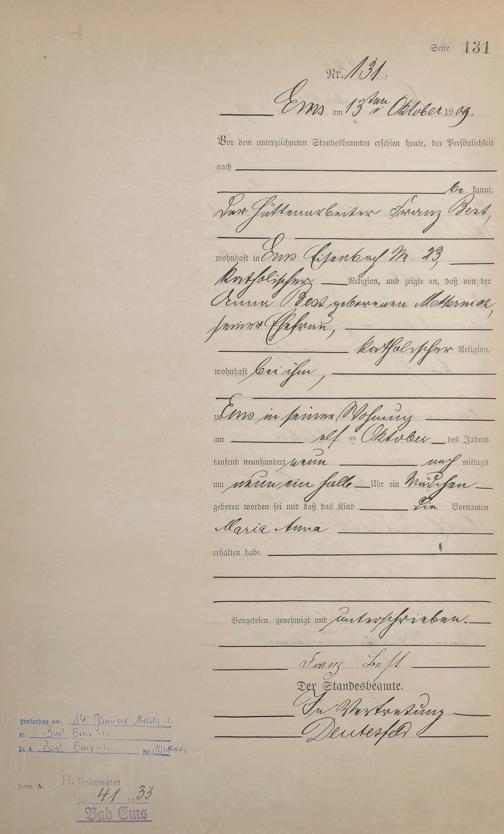 Seite 131
Nr. 131.
Ems am 13ten Oktober 1909.
Vor dem unterzeichneten Standesbeamten erschien heute, der Persönlichkeit
nach
be kannt,
der Hüttenarbeiter Franz Best,
wohnhaft in Ems Eisenbach Nr. 23,
katholischer Religion, und zeigte an, daß von der
Anna Best geborenen
seiner Ehefrau,
katholischer Religion,
wohnhaft bei ihm,
zu Ems in seiner Wohnung
am elf ten Oktober des Jahres
tausend neunhundert neun nach mittags
um neun ein halb Uhr ein Mädchen
geboren worden sei und daß das Kind die Vornamen
Maria Anna
erhalten habe.
Vorgelesen, genehmigt und unterschrieben.
Franz Best
Der Standesbeamte.
In Vertretung
gestorben am: 14. Januar
in Bad Ems
St. A. Bad Ems Nr.
Form. A.
H. Geheiratet
Nr. 41 1933
Bad Ems